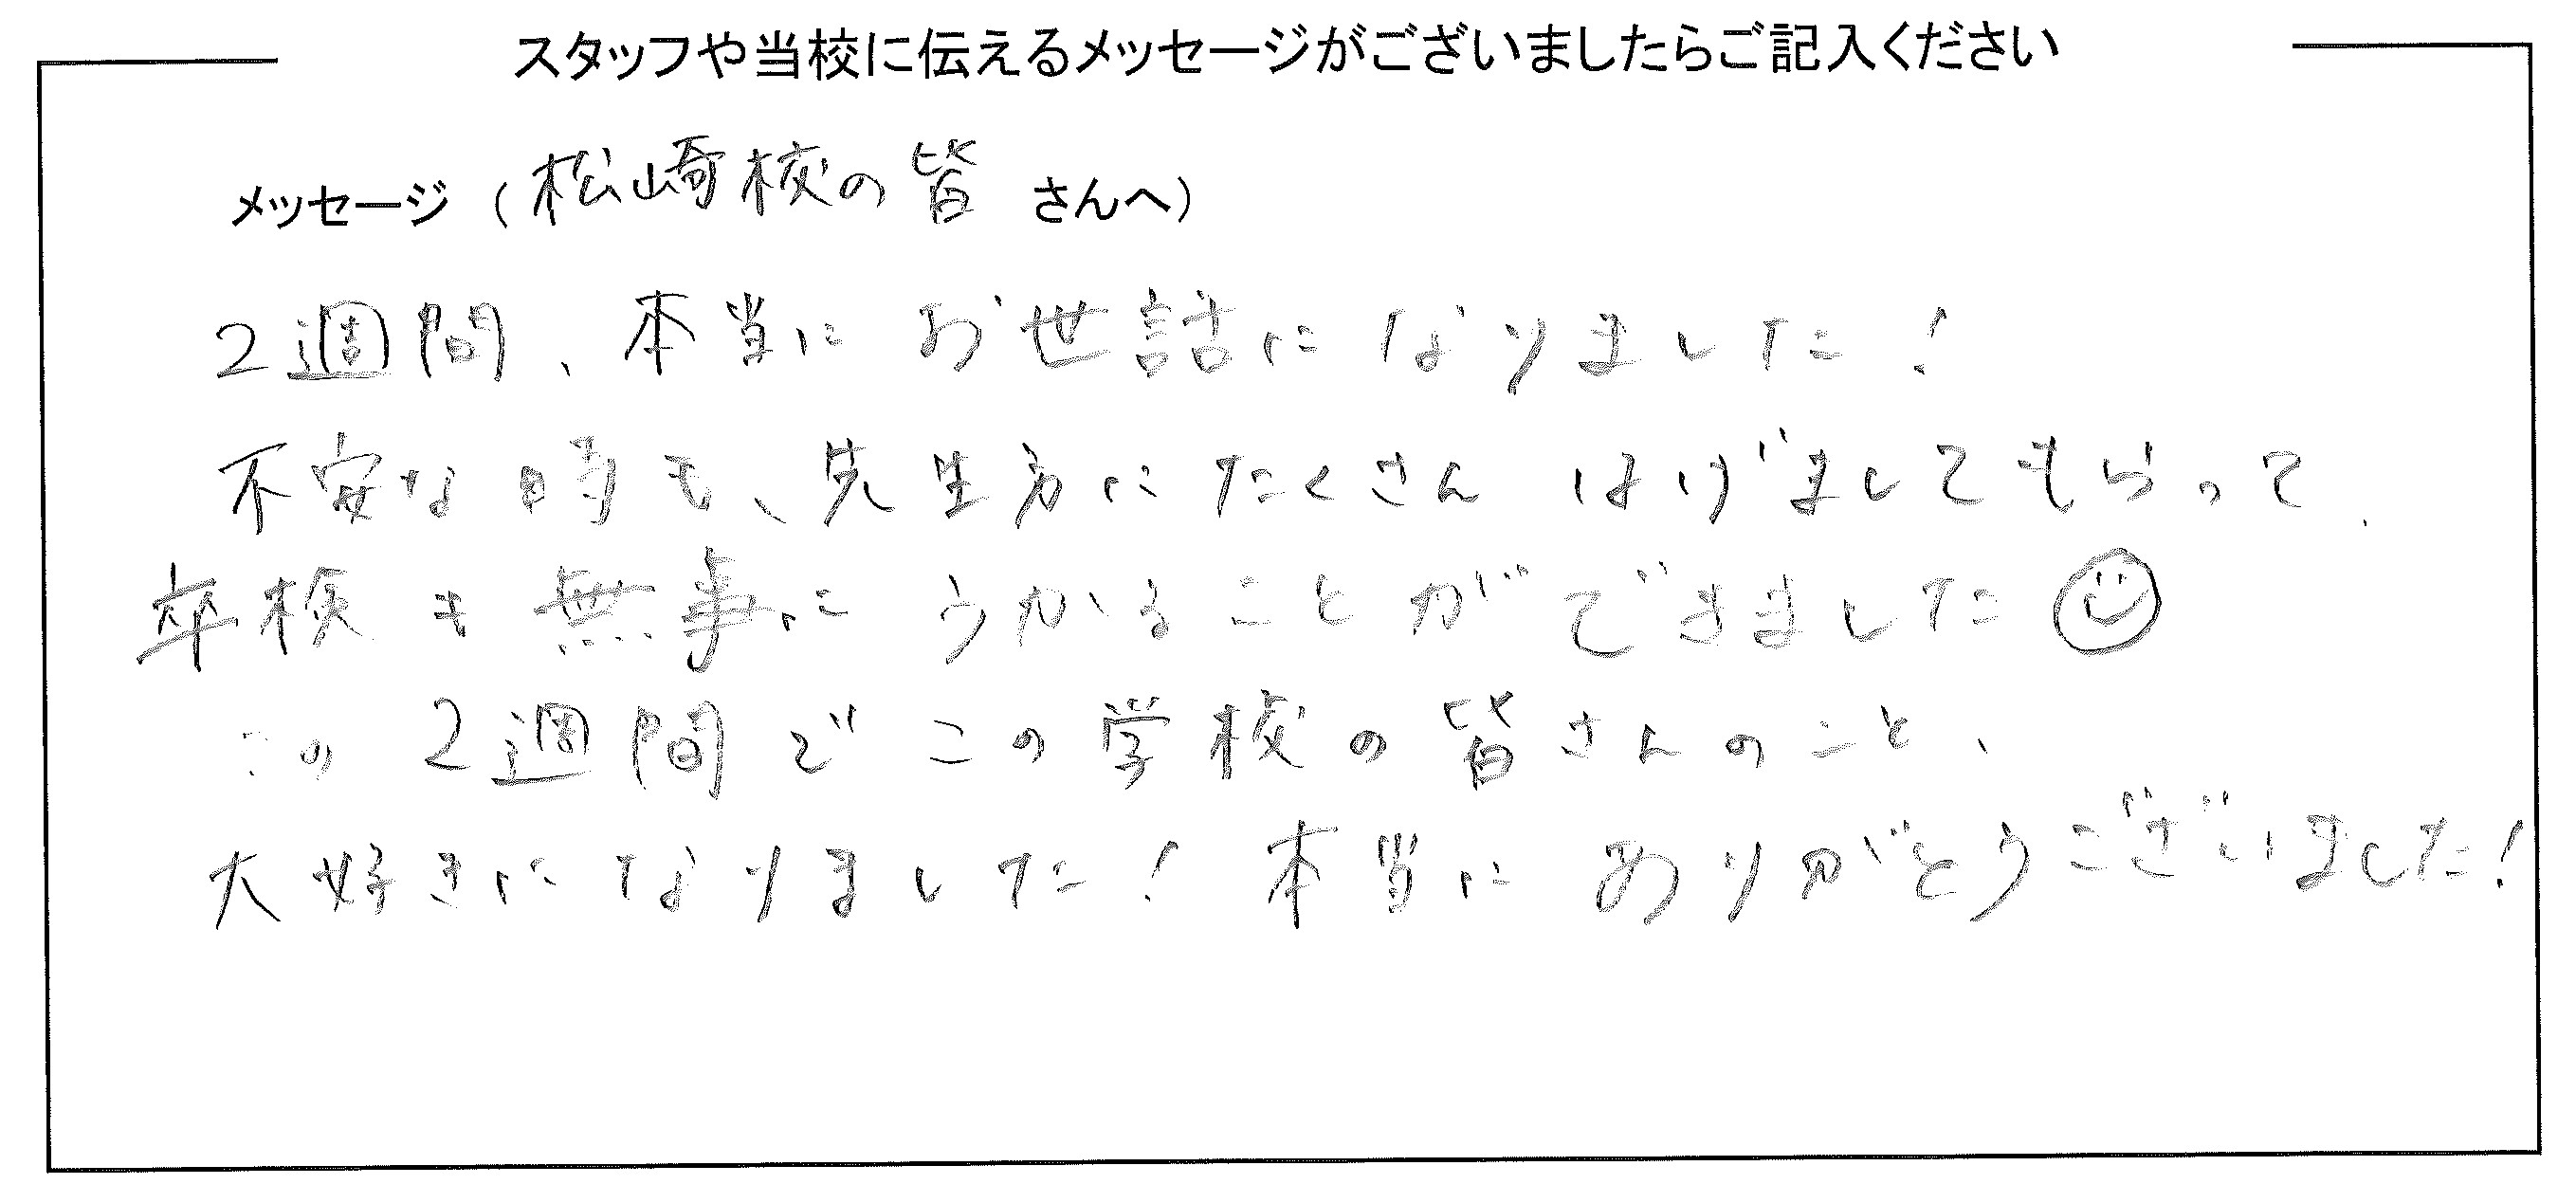 スタッフや当校に伝えるメッセージがございましたらご記入ください
メッセージ（松崎校の皆 さんへ）
2週間、本当にお世話になりました!
不安な時も、先生方にたくさん はげましてもらって、
卒検も無事に うかることができました☺
この 2週間で この学校の皆さんのこと、
大好きになりました! 本当に ありがとうございました!